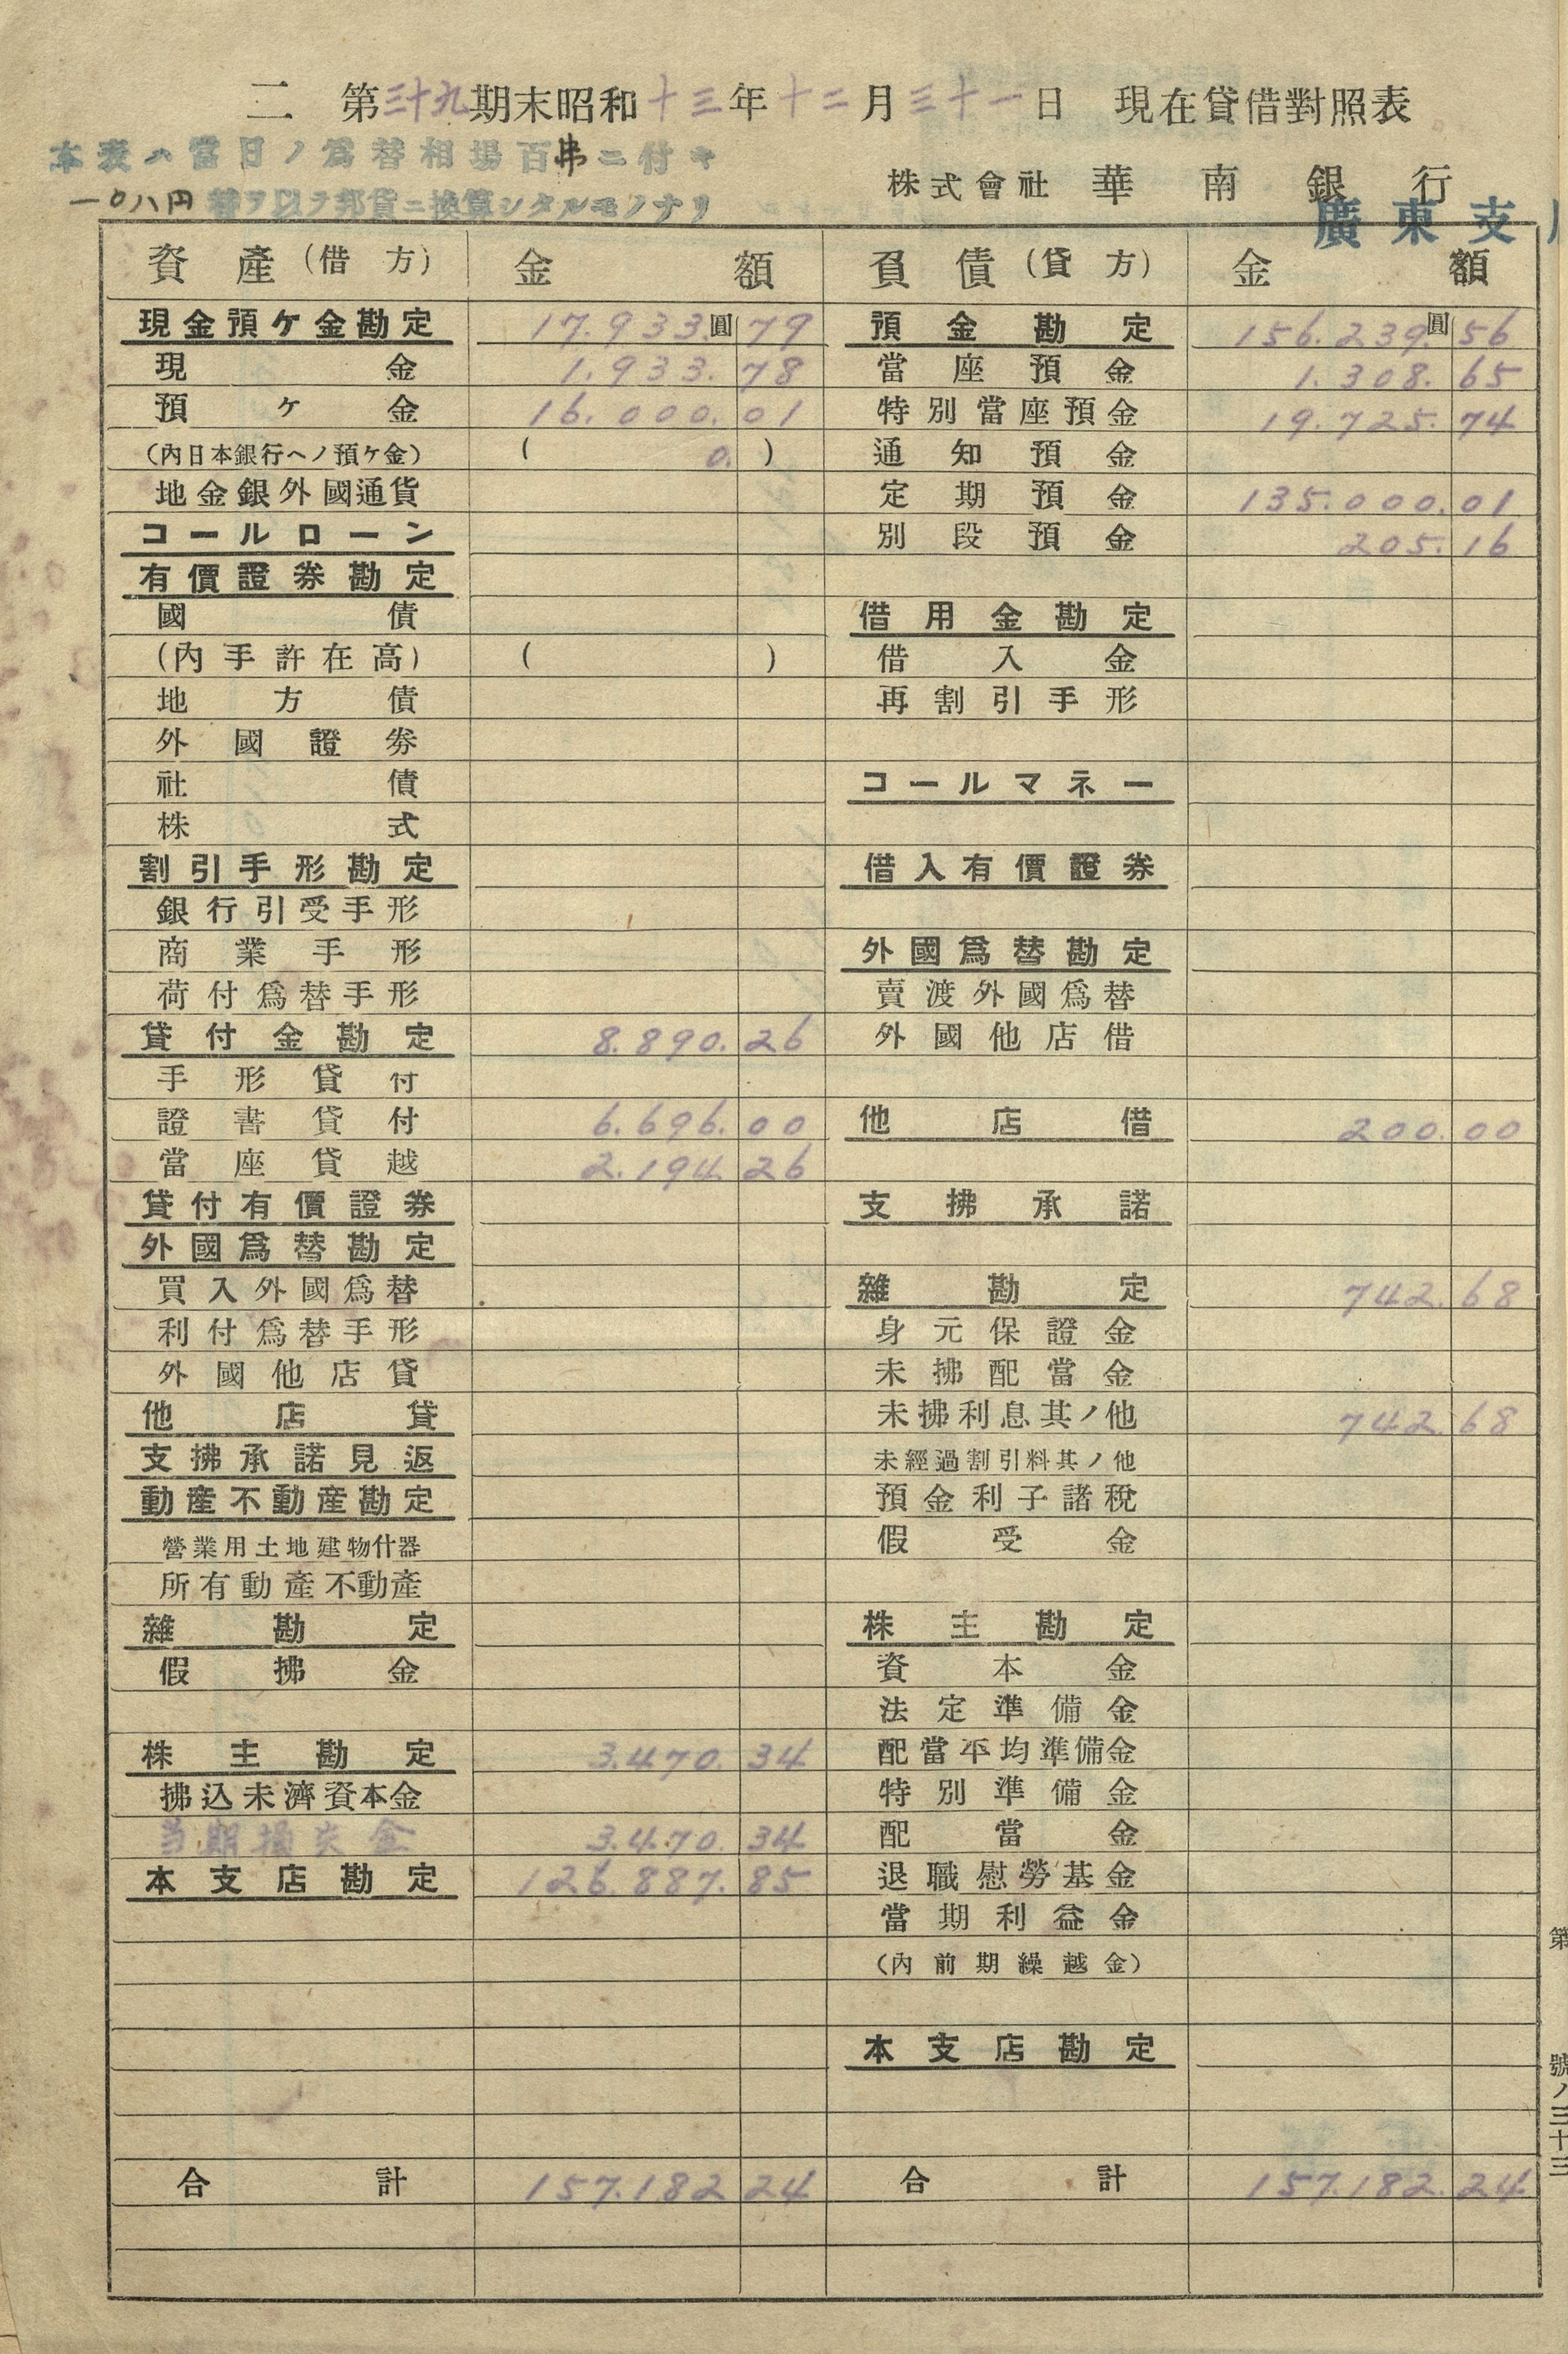 二 第三十九期末昭和十三年十二月三十一日 現在貸借對照表
本表ハ當日ノ爲替相場百弗ニ付キ
一〇八円替ヲ以テ邦貨ニ換算シタルモノナリ
株式會社 華南銀行
廣東支
資產(借方) 金額 負債(貸方) 金額
現金預ケ金勘定 17.933.圓79 預金勘定 156.239.圓56
現金 1.933.78 當座預金 1.308.65
預ケ金 16.000.01 特別當座預金 19.725.74
(內日本銀行ヘノ預ケ金) ( 0. ) 通知預金
地金銀外國通貨 定期預金 135.000.01
コールローン 別段預金 205.16
有價證券勘定
國債 借用金勘定
(內手許在高) ( ) 借入金
地方債 再割引手形
外國證券
社債 コールマネー
株式
割引手形勘定 借入有價證券
銀行引受手形
商業手形 外國爲替勘定
荷付爲替手形 賣渡外國爲替
貸付金勘定 8.890.26 外國他店借
手形貸付
證書貸付 6.696.00 他店借 200.00
當座貸越 2.194.26
貸付有價證券 支拂承諾
外國爲替勘定
買入外國爲替 雜勘定 742.68
利付爲替手形 身元保證金
外國他店貸 未拂配當金
他店貸 未拂利息其ノ他 742.68
支拂承諾見返 未經過割引料其ノ他
動產不動產勘定 預金利子諸稅
營業用土地建物什器 假受金
所有動產不動產
雜勘定 株主勘定
假拂金 資本金
法定準備金
株主勘定 3.470.34 配當平均準備金
拂込未濟資本金 特別準備金
当期損失金 3.470.34 配當金
本支店勘定 126.887.85 退職慰勞基金
當期利益金
(內前期繰越金)
本支店勘定
合計 157.182 24 合計 157.182.24
第
號八三十三